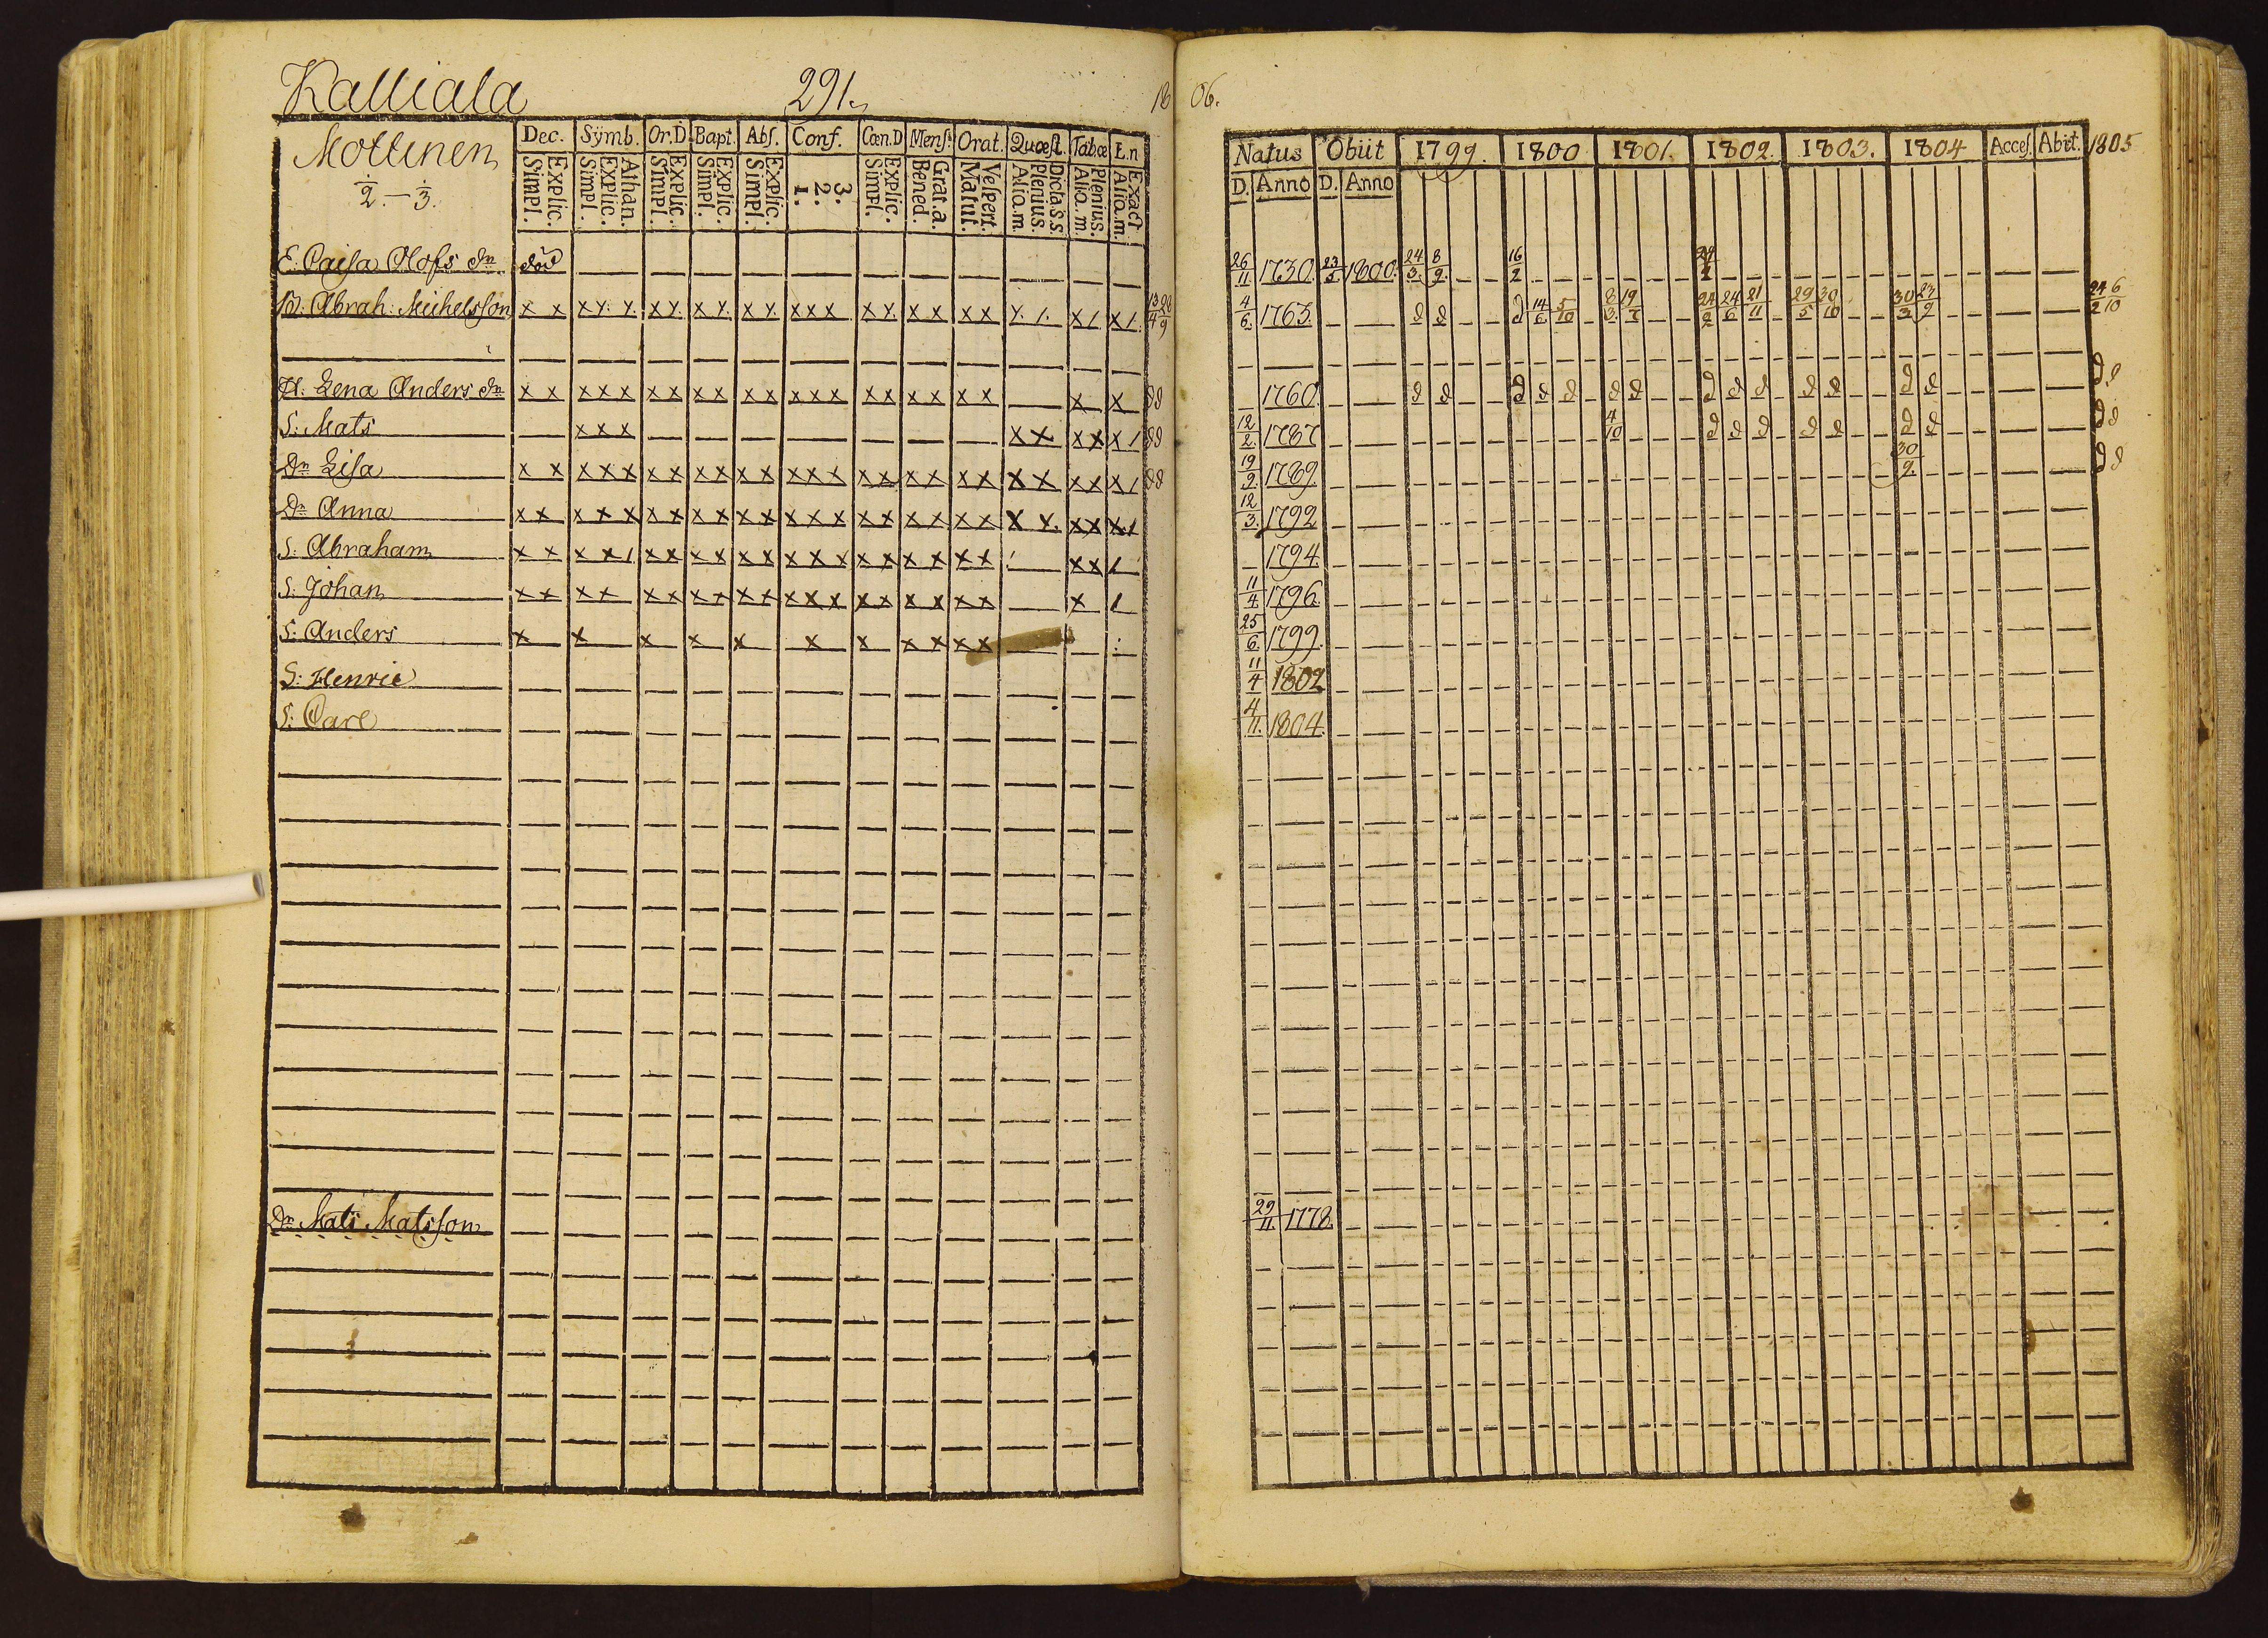 Kalliala 291. 18 06.
Mottinen Dec. Sÿmb. Or.D. Bapt. Abſ. Conf. Cœn.D Menſ. Orat. Quœſt. Tabœ E.n
2.–3. Simpl. Explic. Simpl. Explic. Athan. Simpl. Explic. Simpl. Explic. Simpl. Explic. 1. 2. 3. Simpl. Explic. Bened. Grat.a. Matut. Veſpert. Alio.m Plenius. Dicta.s.s. Alio.m Plenius. Alio.m. Exact
Natus Obiit 1799. 1800 1801. 1802. 1803. 1804 Acceſ. Abit. 1805
D. Anno D. Anno
E. Caisa Olofs dr död 26/11 1730. 23/5 1800. 24/3. 8/9. 16/2
B. Abrah: Michelsson x x x x x x x x x x x x x x x x x x x 4/6. 1765. d d d 14/6 5/10 8/3 24/6 21/11 29/5 30/10 30/3 23/9 24/2 6/10
H: Lena Anders dr x x x x x x x x x x x x x x x x x x x x x x d d 1760. d d d d d d d d d d d d d d d d
S: Mats x x x x x x x x 1 d d 12/2. 1787. 4/10 d d d d d d d d d
Dr Lisa x x x x x x x x x x x x x x x x x x x x x x x x x 1 d d 19/9. 1789. 30/9. d d
Dr Anna x x x x x x x x x x x x x x x x x x x x x x x x x 1 12/3. 1792
S: Abraham x x x x 1 x x x x x x x x x x x x x x x 1 x x 1 1794.
S: Johan x x x x x x x x x x x x x x x x x x x x x 1 11/4 1796.
S: Anders x x x x x x x x x x x 25/6. 1799.
S: Henric 11/4 1802
S: Carl 4/11. 1804.
Dr Mats Matsson 29/11. 1778.